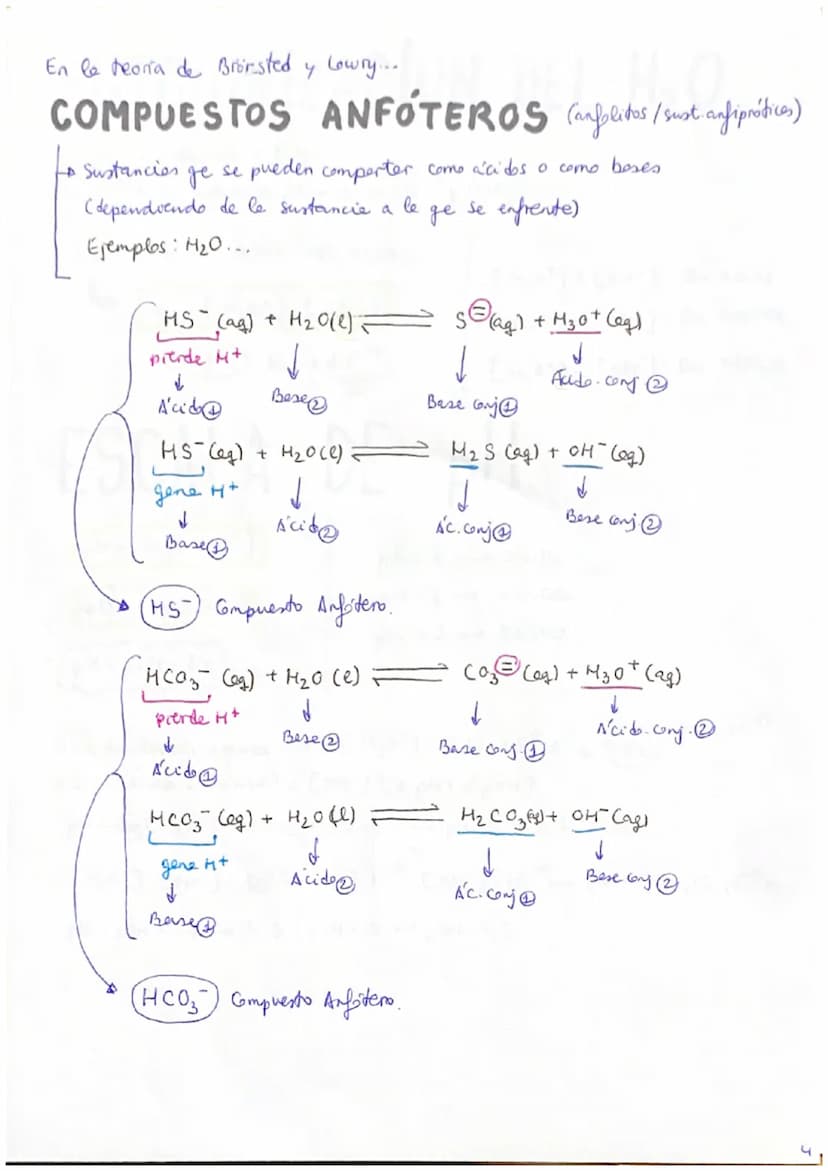 En la teoría de Brönsted y Lowry...
COMPUESTOS ANFÓTEROS (anfolitos / sust. anfipróticas)
→ Sustancias qe se pueden comportar como ácidos o como bases
(dependiendo de la sustancia a la qe se enfrente)
Ejemplos: H₂O...
HS⁻ (aq) + H₂O(l) ⇌ S⁼(aq) + H₃O⁺ (aq)
pierde H⁺ ↓ ↓ ↓
↓ Base② Base conj① Ácido. conj ②
Ácido①
HS⁻(aq) + H₂O(l) ⇌ H₂S (aq) + OH⁻(aq)
gana H⁺ ↓ ↓ ↓
↓ Ácido② Ác. conj① Base conj ②
Base①
HS⁻ Compuesto Anfótero.
HCO₃⁻ (aq) + H₂O (l) ⇌ CO₃⁼ (aq) + H₃O⁺ (aq)
pierde H⁺ ↓ ↓ ↓
↓ Base② Base conj. ① Ácido. conj. ②
Ácido①
HCO₃⁻ (aq) + H₂O (l) ⇌ H₂CO₃(aq) + OH⁻ (aq)
gana H⁺ ↓ ↓ ↓
↓ Ácido② Ác. conj ① Base conj ②
Base①
HCO₃⁻ Compuesto Anfótero.
4